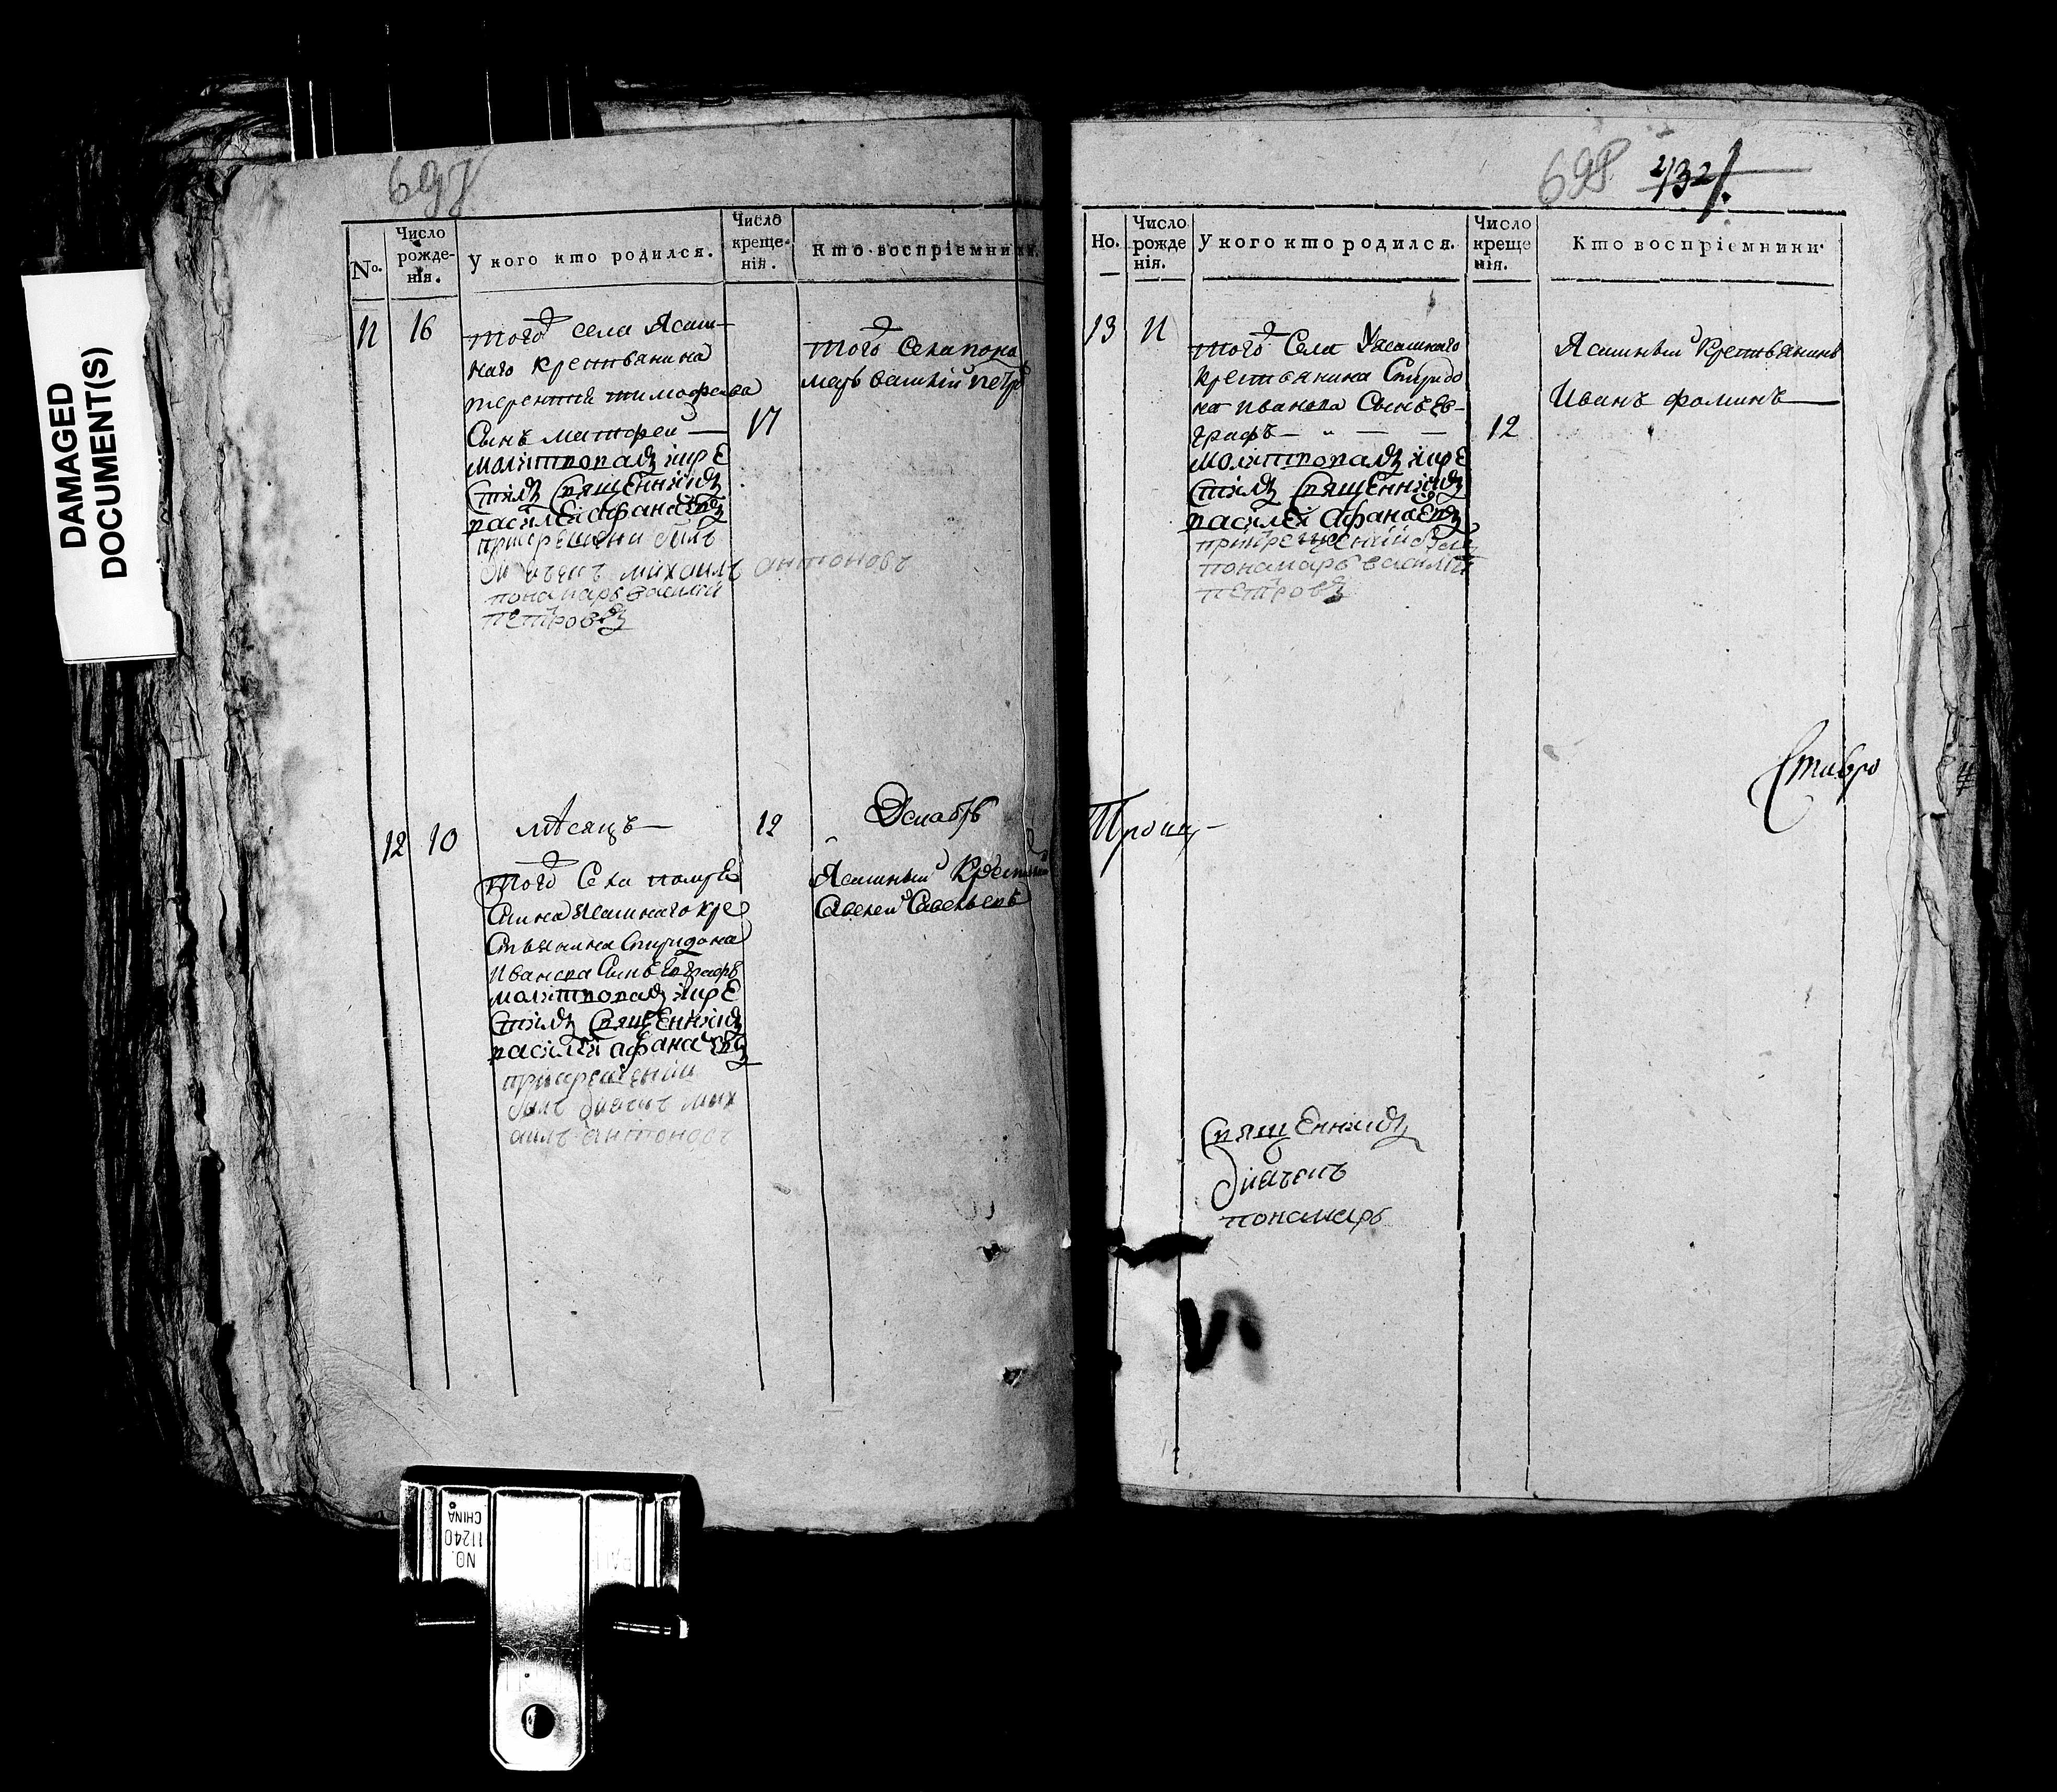 DAMAGED
DOCUMENT(S)
697
№.
Число
рожде-
нія.
У кого кто родился.
Число
креще-
нія.
Кто воспріемники.
11 16
того села Ясаш-
наго крестьянина
терентия тимофеева
Сынъ матфей —
17
молитвовалъ икре
стилъ Священникъ
василей афанасевъ
прикрещени былъ
диаченъ михаилъ антоновъ
понамарь василий
петровъ
того Села пона
марь василий петр
12 10
мѣсяцъ —
12
Декабрь
того Села
Ясашнаго кре
стьянина Спиридона
Иванова Сынъ Евграфъ
молитвовалъ икре
стилъ Священникъ
василей афанасевъ
прикрещении
былъ диаченъ мих
аилъ антоновъ
Ясашный Крестьянин
Савелей Савельевъ
698 432
Но.
Число
рожде
нія.
У кого кто родился.
Число
креще
нія.
Кто воспріемники.
13 11
того Села Ясашнаго
крестьянина Спиридо
на иванова Сынъ Ев-
графъ —
12
молитвовалъ икре
стилъ Священникъ
василей афанасевъ
прикрещении былъ
понамарь василий
петровъ
Ясашный Крестьянинъ
Иванъ фоминъ —
Ставро
Троиц-
Священникъ
диаченъ
понамарь
NO.
11240
CHINA